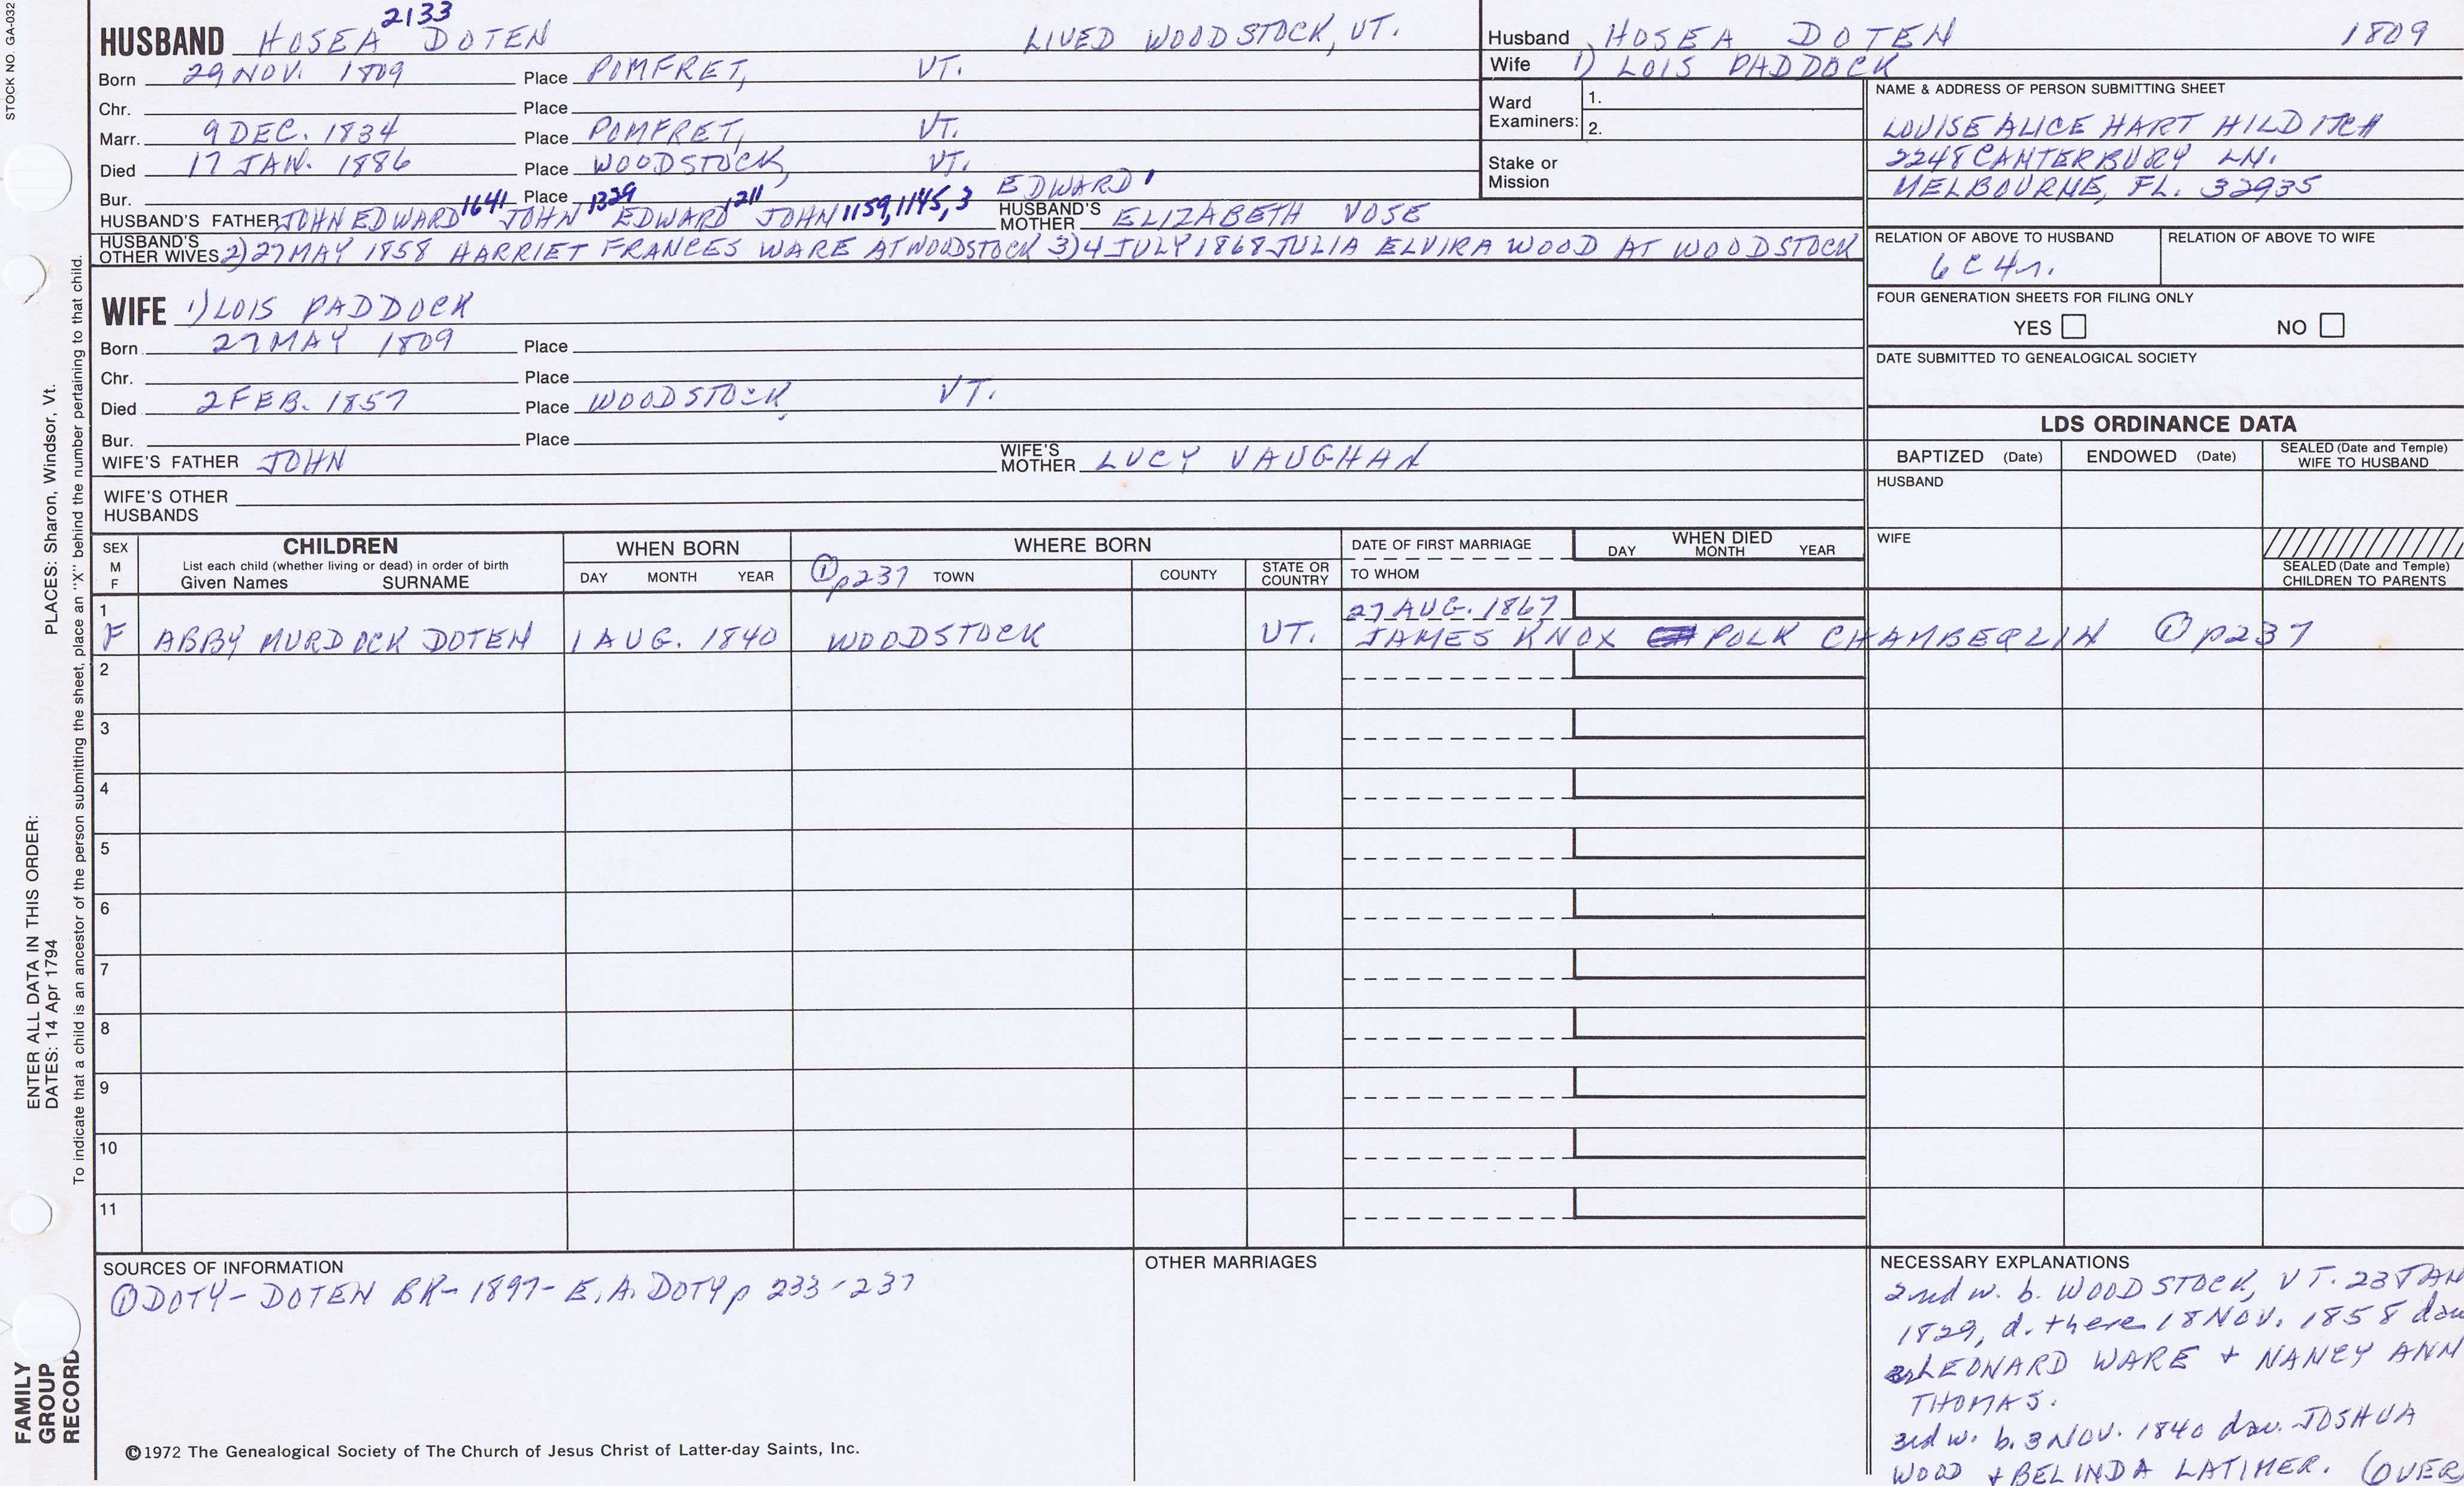 STOCK NO. GA-032
2133
HUSBAND HOSEA DOTEN LIVED WOODSTOCK, VT.
Born 29 NOV. 1809 Place POMFRET, VT.
Chr. Place
Marr. 9 DEC. 1834 Place POMFRET, VT.
Died 17 JAN. 1886 Place WOODSTOCK, VT.
Bur. Place
1641 1329 1211 1159, 1145, 3 EDWARD 1
HUSBAND'S FATHER JOHN EDWARD JOHN EDWARD JOHN HUSBAND'S MOTHER ELIZABETH VOSE
HUSBAND'S OTHER WIVES 2) 27 MAY 1858 HARRIET FRANCES WARE AT WOODSTOCK 3) 4 JULY 1868 JULIA ELVIRA WOOD AT WOODSTOCK
WIFE 1) LOIS PADDOCK
Born 27 MAY 1809 Place
Chr. Place
Died 2 FEB. 1857 Place WOODSTOCK, VT.
Bur. Place
WIFE'S FATHER JOHN WIFE'S MOTHER LUCY VAUGHAN
WIFE'S OTHER HUSBANDS
Husband HOSEA DOTEN 1809
Wife 1) LOIS PADDOCK
Ward Examiners: 1.
2.
Stake or Mission
NAME & ADDRESS OF PERSON SUBMITTING SHEET
LOUISE ALICE HART HILDITCH
2248 CANTERBURY LN.
MELBOURNE, FL. 32935
RELATION OF ABOVE TO HUSBAND RELATION OF ABOVE TO WIFE
6 C 4 r.
FOUR GENERATION SHEETS FOR FILING ONLY
YES NO
DATE SUBMITTED TO GENEALOGICAL SOCIETY
LDS ORDINANCE DATA
BAPTIZED (Date) ENDOWED (Date) SEALED (Date and Temple) WIFE TO HUSBAND
HUSBAND
WIFE
SEALED (Date and Temple) CHILDREN TO PARENTS
SEX M F
CHILDREN
List each child (whether living or dead) in order of birth
Given Names SURNAME
WHEN BORN
DAY MONTH YEAR
WHERE BORN
① p237 TOWN COUNTY STATE OR COUNTRY
DATE OF FIRST MARRIAGE
TO WHOM
WHEN DIED
DAY MONTH YEAR
1 27 AUG. 1867
F ABBY MURDOCK DOTEN 1 AUG. 1840 WOODSTOCK VT. JAMES KNOX POLK CHAMBERLIN ① p237
2
3
4
5
6
7
8
9
10
11
SOURCES OF INFORMATION
① DOTY-DOTEN BK-1897-E.A. DOTY p 233-237
OTHER MARRIAGES
NECESSARY EXPLANATIONS
2nd w. b. WOODSTOCK, VT. 23 JAN
1829, d. there 18 NOV. 1858 dau
LEONARD WARE + NANCY ANN
THOMAS.
3rd w. b. 3 NOV. 1840 dau. JOSHUA
WOOD + BELINDA LATIMER. (OVER
©1972 The Genealogical Society of The Church of Jesus Christ of Latter-day Saints, Inc.
ENTER ALL DATA IN THIS ORDER:
DATES: 14 Apr 1794 PLACES: Sharon, Windsor, Vt.
To indicate that a child is an ancestor of the person submitting the sheet, place an "X" behind the number pertaining to that child.
FAMILY
GROUP
RECORD